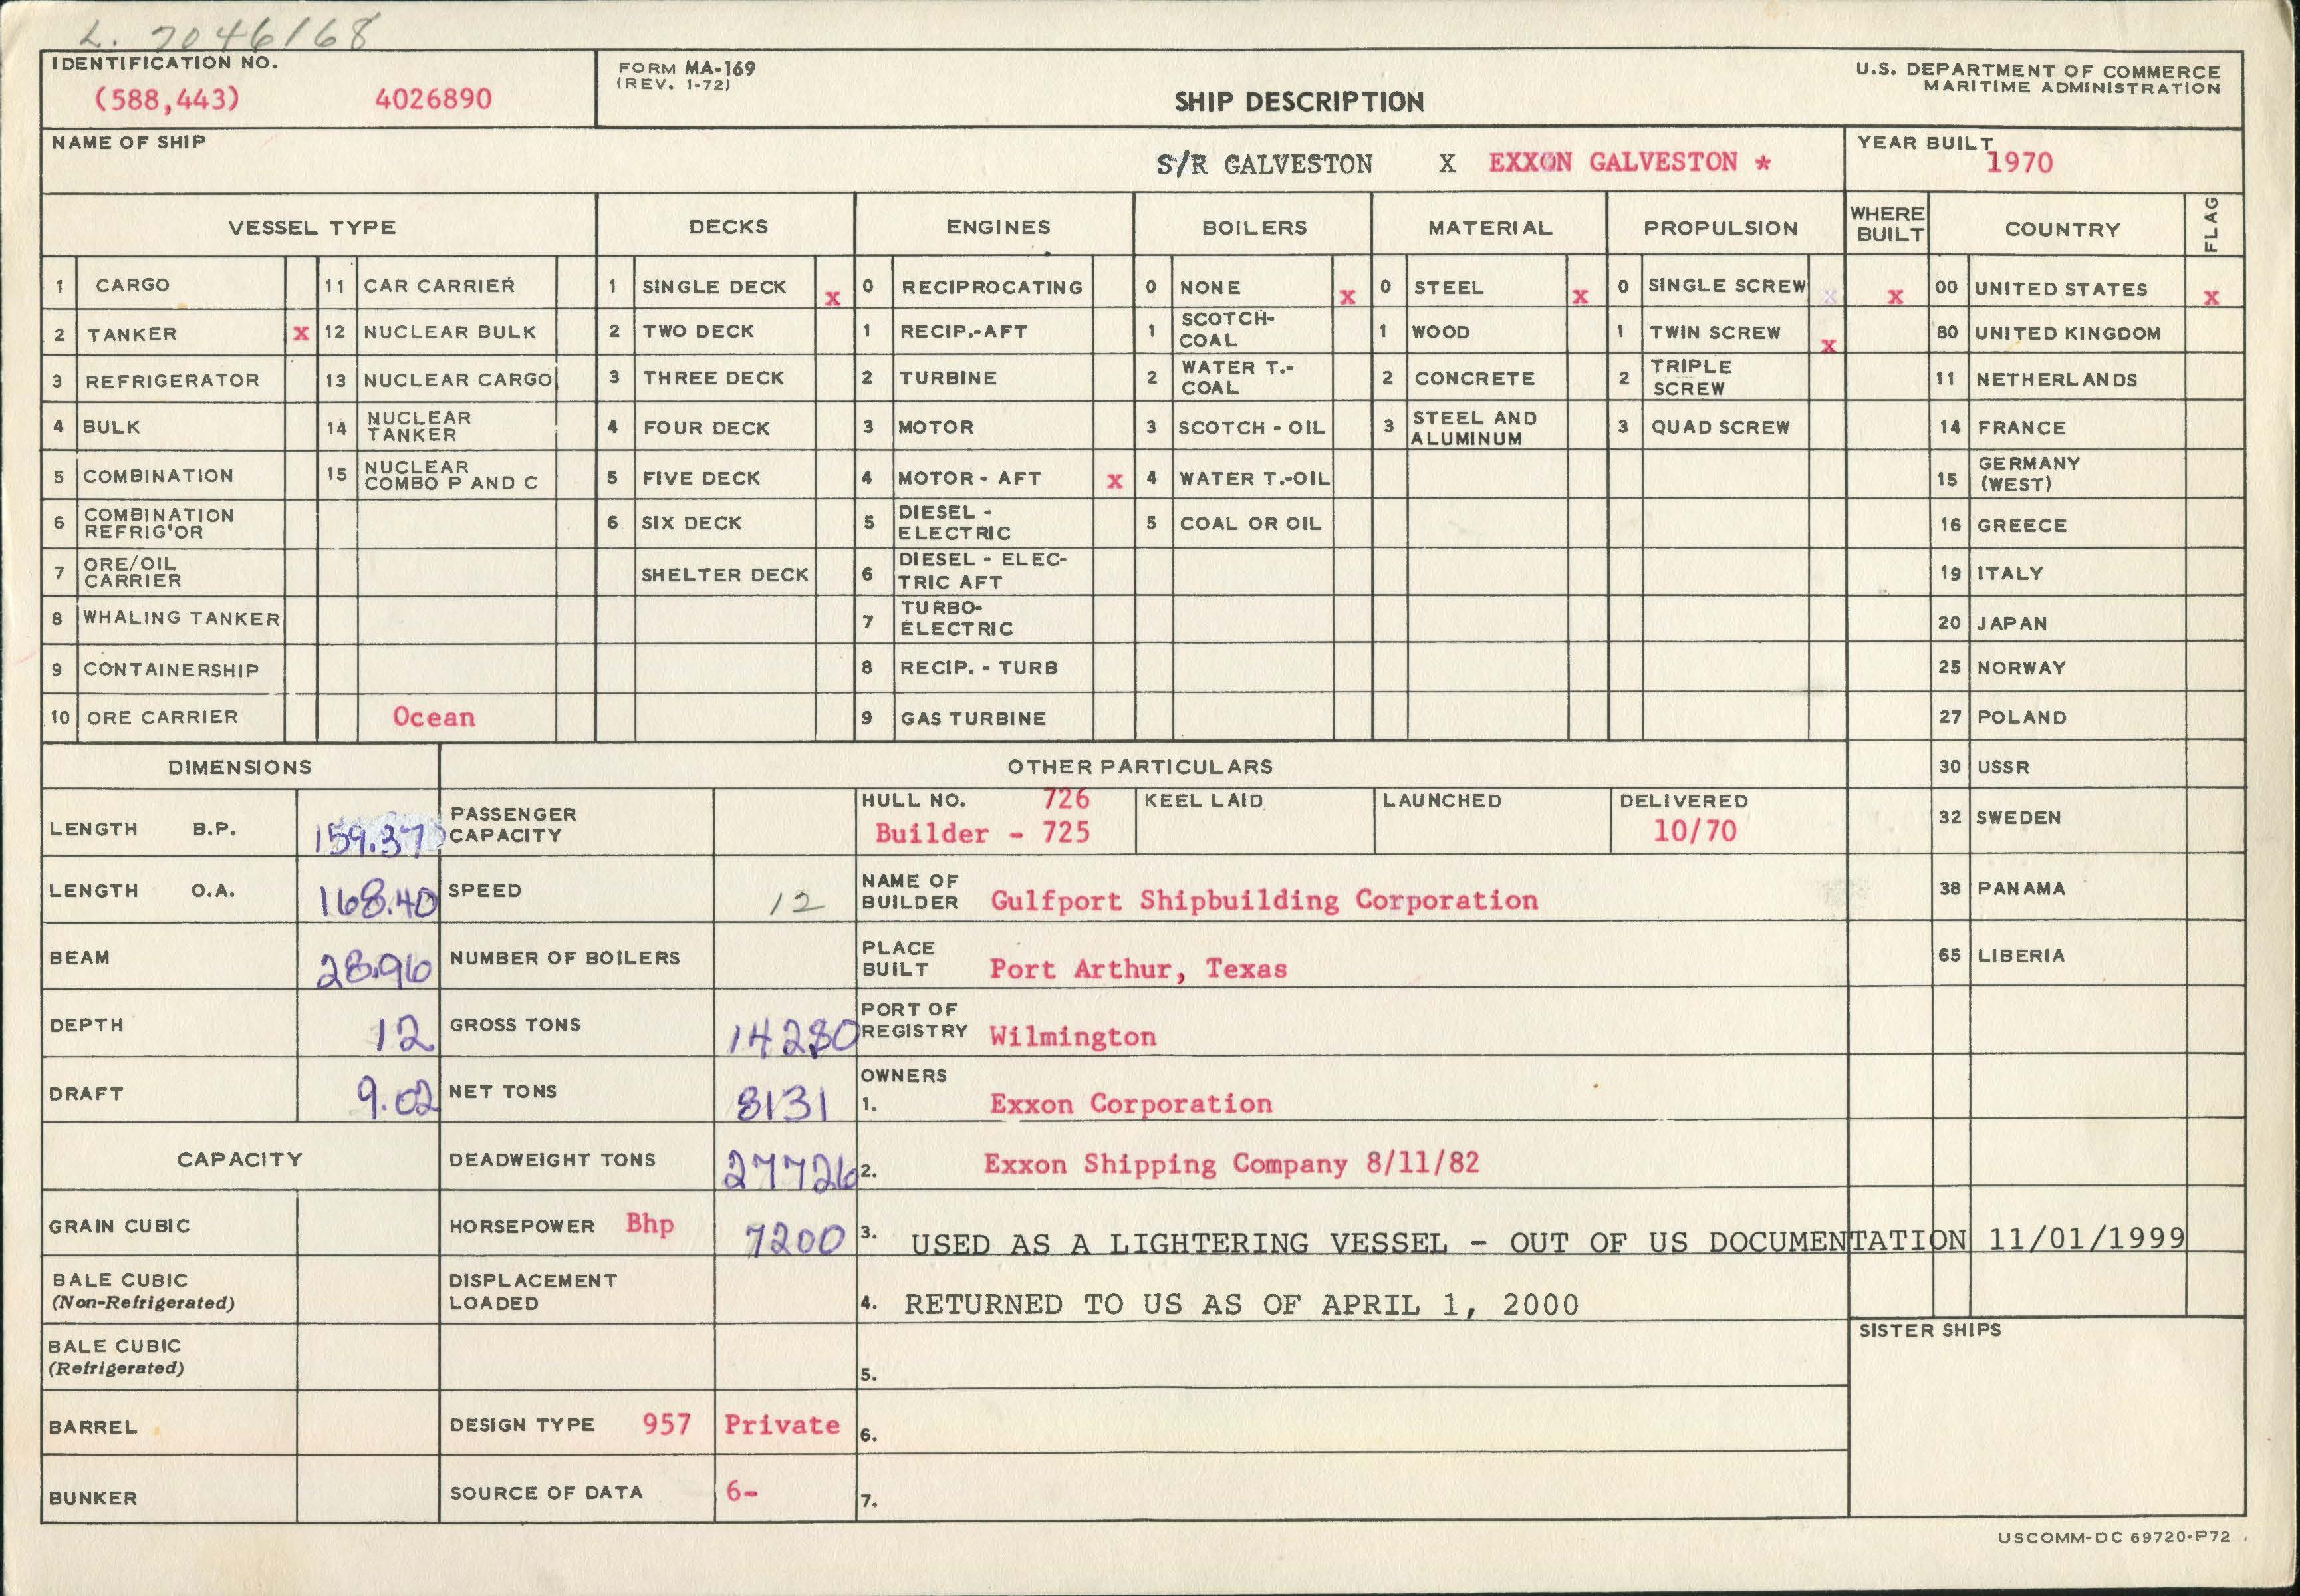 L. 7046168
IDENTIFICATION NO.
(588,443) 4026890
FORM MA-169
(REV. 1-72)
SHIP DESCRIPTION
U.S. DEPARTMENT OF COMMERCE
MARITIME ADMINISTRATION
NAME OF SHIP
S/R GALVESTON X EXXON GALVESTON *
YEAR BUILT
1970
VESSEL TYPE DECKS ENGINES BOILERS MATERIAL PROPULSION WHERE BUILT COUNTRY FLAG
1 CARGO 11 CAR CARRIER 1 SINGLE DECK x 0 RECIPROCATING 0 NONE x 0 STEEL x 0 SINGLE SCREW x x 00 UNITED STATES x
2 TANKER x 12 NUCLEAR BULK 2 TWO DECK 1 RECIP.-AFT 1 SCOTCH-COAL 1 WOOD 1 TWIN SCREW x 80 UNITED KINGDOM
3 REFRIGERATOR 13 NUCLEAR CARGO 3 THREE DECK 2 TURBINE 2 WATER T.-COAL 2 CONCRETE 2 TRIPLE SCREW 11 NETHERLANDS
4 BULK 14 NUCLEAR TANKER 4 FOUR DECK 3 MOTOR 3 SCOTCH - OIL 3 STEEL AND ALUMINUM 3 QUAD SCREW 14 FRANCE
5 COMBINATION 15 NUCLEAR COMBO P AND C 5 FIVE DECK 4 MOTOR - AFT x 4 WATER T.-OIL 15 GERMANY (WEST)
6 COMBINATION REFRIG'OR 6 SIX DECK 5 DIESEL - ELECTRIC 5 COAL OR OIL 16 GREECE
7 ORE/OIL CARRIER SHELTER DECK 6 DIESEL - ELEC-TRIC AFT 19 ITALY
8 WHALING TANKER 7 TURBO-ELECTRIC 20 JAPAN
9 CONTAINERSHIP 8 RECIP. - TURB 25 NORWAY
10 ORE CARRIER Ocean 9 GAS TURBINE 27 POLAND
DIMENSIONS OTHER PARTICULARS 30 USSR
LENGTH B.P. 159.37 PASSENGER CAPACITY HULL NO. 726 KEEL LAID LAUNCHED DELIVERED 32 SWEDEN
Builder - 725 10/70
LENGTH O.A. 168.40 SPEED 12 NAME OF BUILDER Gulfport Shipbuilding Corporation 38 PANAMA
BEAM 28.96 NUMBER OF BOILERS PLACE BUILT Port Arthur, Texas 65 LIBERIA
DEPTH 12 GROSS TONS 14280 PORT OF REGISTRY Wilmington
DRAFT 9.02 NET TONS 8131 OWNERS
1. Exxon Corporation
CAPACITY DEADWEIGHT TONS 27726 2. Exxon Shipping Company 8/11/82
GRAIN CUBIC HORSEPOWER Bhp 7200 3. USED AS A LIGHTERING VESSEL - OUT OF US DOCUMENTATION 11/01/1999
BALE CUBIC (Non-Refrigerated) DISPLACEMENT LOADED 4. RETURNED TO US AS OF APRIL 1, 2000
SISTER SHIPS
BALE CUBIC (Refrigerated) 5.
BARREL DESIGN TYPE 957 Private 6.
BUNKER SOURCE OF DATA 6- 7.
USCOMM-DC 69720-P72